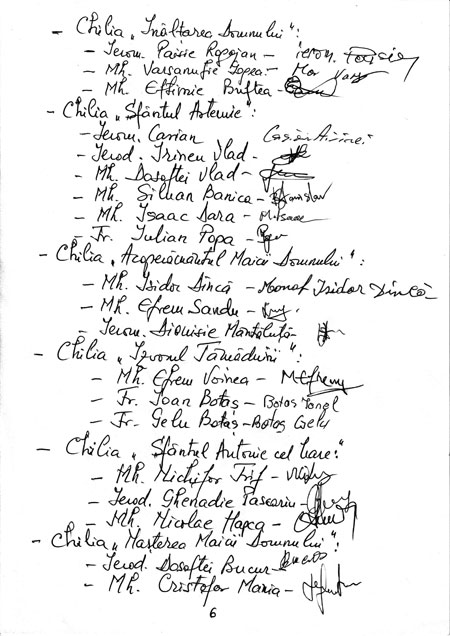 - Chilia „Înălțarea Domnului":
- Ierom. Paisie Rogojan - ierom. Paisie
- Mh. Varsanufie Gogea - Mon Vars
- Mh. Eftimie Buftea -
- Chilia „Sfântul Artemie":
- Ierom. Casian
- Ierod. Irineu Vlad -
- Mh. Dosoftei Vlad -
- Mh. Siluan Banica -
- Mh. Isaac Sara - M. Isaac
- Fr. Iulian Popa -
- Chilia „Acoperământul Maicii Domnului":
- Mh. Isidor Dincă - Monah Isidor Dincă
- Mh. Efrem Sandu -
- Ierom. Dionisie Măntăluță -
- Chilia „Izvorul Tămăduirii":
- Mh. Efrem Voinea - M Efrem
- Fr. Ioan Botaș - Botaș Ionel
- Fr. Gelu Botaș - Botaș Gelu
- Chilia „Sfântul Antonie cel Mare":
- Mh. Nichifor Trif -
- Ierod. Ghenadie Pascariu -
- Mh. Nicolae Hapca -
- Chilia „Nașterea Maicii Domnului":
- Ierod. Dosoftei Bucur - Bucur
- Mh. Cristofor Maria -
6